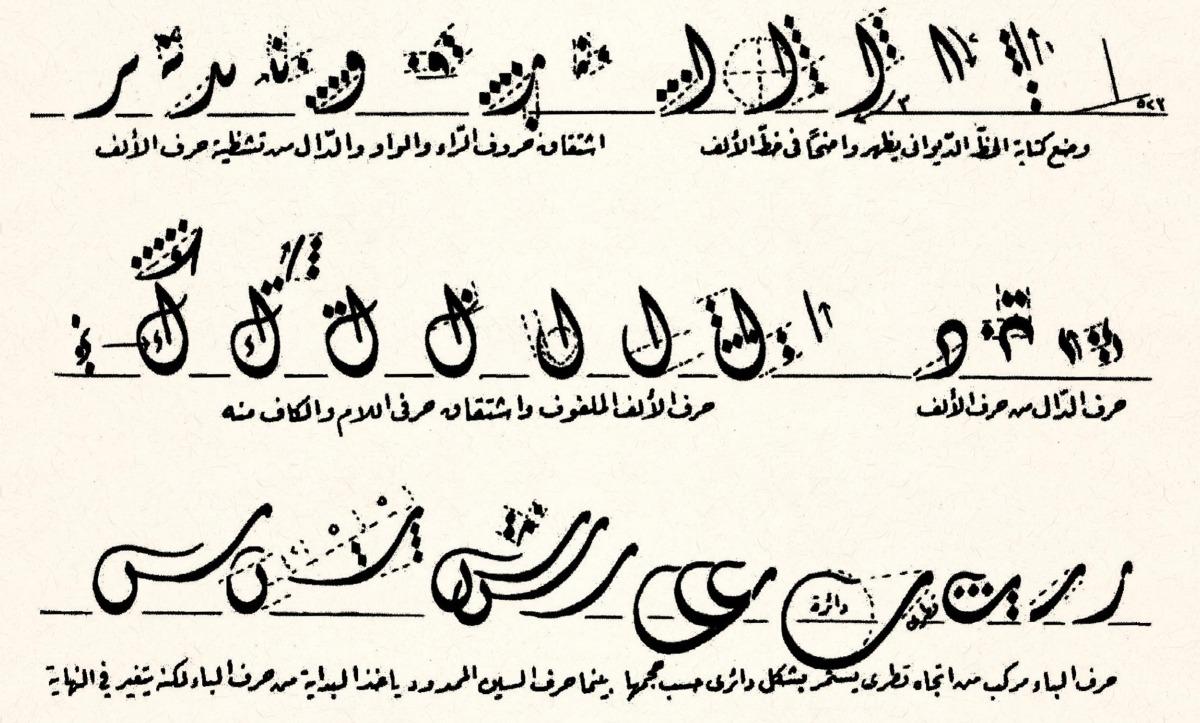 وضع كتابة الخطّ الدّيوانى يظهر واضحًا فى خطّ الألف
اشتقاق حروف الرّاء والواو والدّال من تشظية حرف الألف
حرف الدّال من حرف الألف
حرف الألف الملفوف واشتقاق حرفى اللام والكاف منه
دائرة
قطرى
حرف الباء مركب من اتجاه قطرى يستمر بشكل دائرى حسب حجمها بينما حرف السين الممدود ياخذ البداية من حرف الباء لكنه يتغير فى النهاية